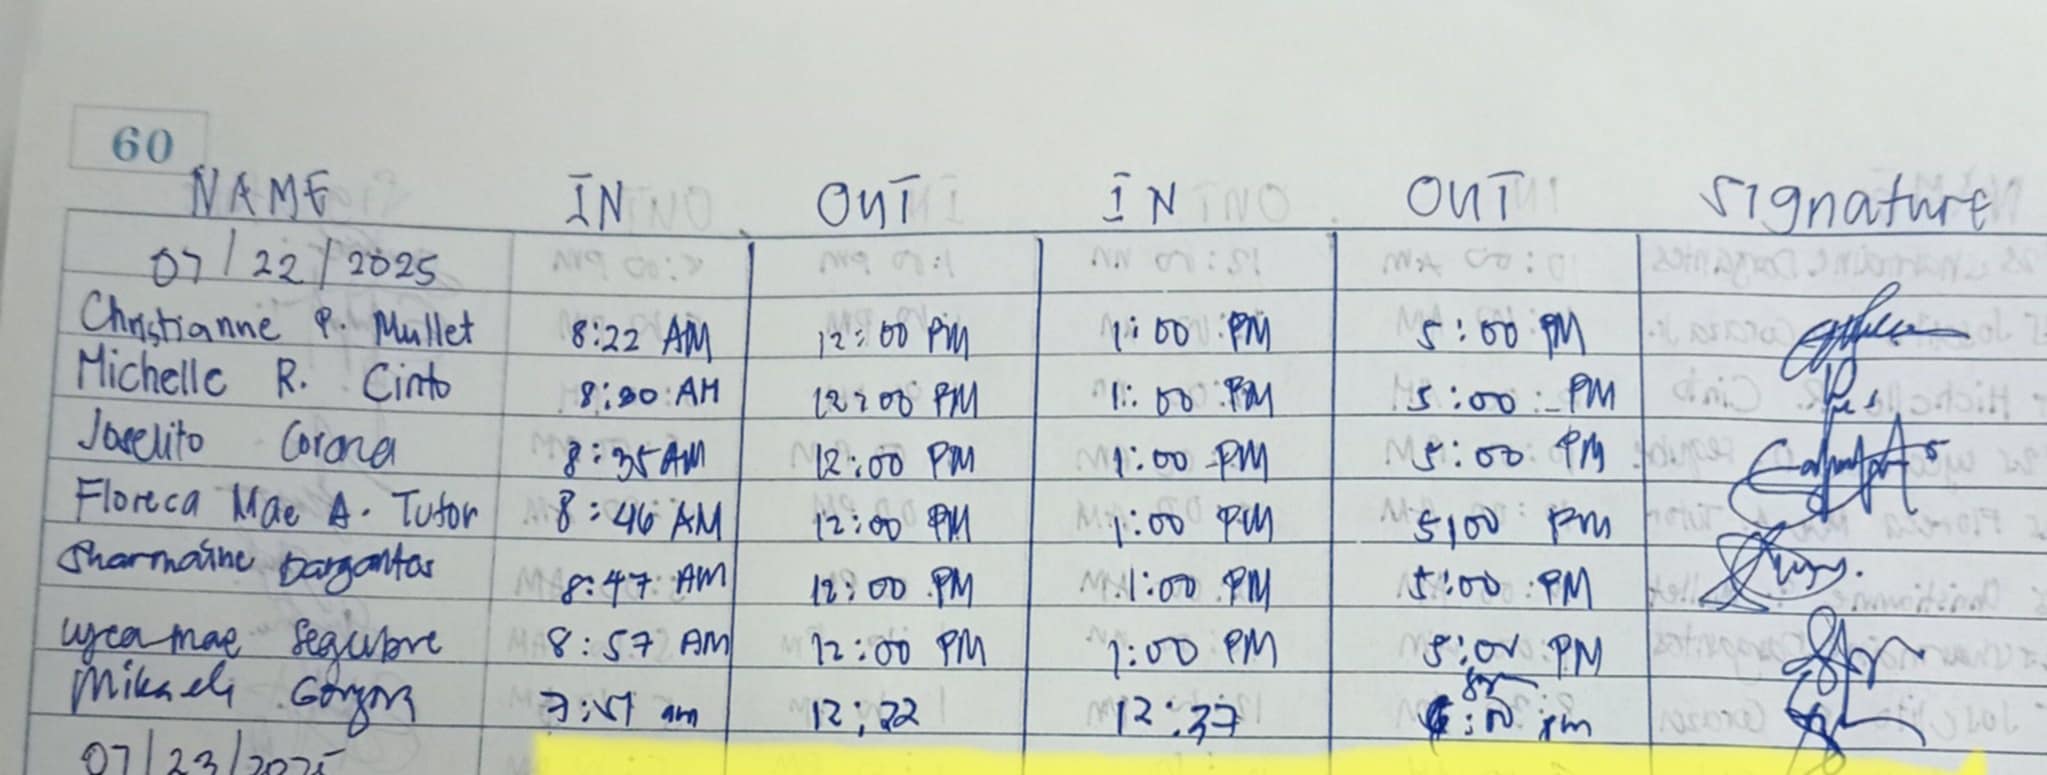 60
NAME IN OUT IN OUT Signature
07/22/2025
Christianne P. Mullet 8:22 AM 12:00 PM 1:00 PM 5:00 PM
Michelle R. Cinto 8:30 AM 12:00 PM 1:00 PM 5:00 PM
Joselito Corona 8:35 AM 12:00 PM 1:00 PM 5:00 PM
Floreca Mae A. Tutor 8:46 AM 12:00 PM 1:00 PM 5:00 PM
Sharmaine Dargantas 8:47 AM 12:00 PM 1:00 PM 5:00 PM
Lyca mae Segubre 8:57 AM 12:00 PM 1:00 PM 5:00 PM
Mikaeli 7:51 am 12:22 12:37
07/23/2025